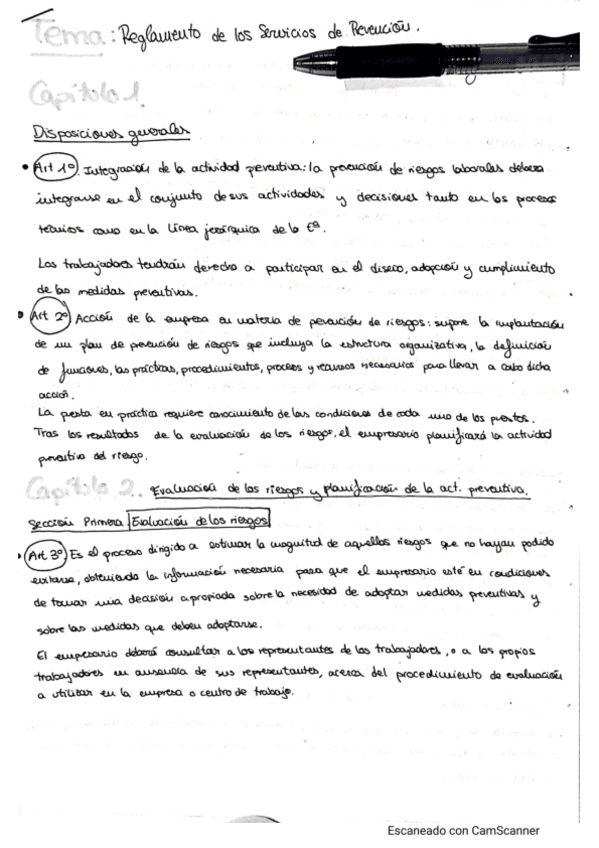 Tema: Reglamento de los Servicios de Prevención.
Capítulo 1.
Disposiciones generales
• Art 1º. Integración de la actividad preventiva: la prevención de riesgos laborales deberá
integrarse en el conjunto de sus actividades y decisiones tanto en los procesos
técnicos como en la línea jerárquica de la Eª.
Los trabajadores tendrán derecho a participar en el diseño, adopción y cumplimiento
de las medidas preventivas.
• Art 2º Acción de la empresa en materia de prevención de riesgos: supone la implantación
de un plan de prevención de riesgos que incluya la estructura organizativa, la definición
de funciones, las prácticas, procedimientos, procesos y recursos necesarios para llevar a cabo dicha
acción.
La puesta en práctica requiere conocimiento de las condiciones de cada uno de los puestos.
Tras los resultados de la evaluación de los riesgos, el empresario planificará la actividad
preventiva del riesgo.
Capítulo 2. Evaluación de los riesgos y planificación de la act. preventiva.
Sección Primera Evaluación de los riesgos
• Art 3º Es el proceso dirigido a estimar la magnitud de aquellos riesgos que no hayan podido
evitarse, obteniendo la información necesaria para que el empresario esté en condiciones
de tomar una decisión apropiada sobre la necesidad de adoptar medidas preventivas y
sobre las medidas que deben adoptarse.
El empresario deberá consultar a los representantes de los trabajadores, o a los propios
trabajadores en ausencia de sus representantes, acerca del procedimiento de evaluación
a utilizar en la empresa o centro de trabajo.
Escaneado con CamScanner